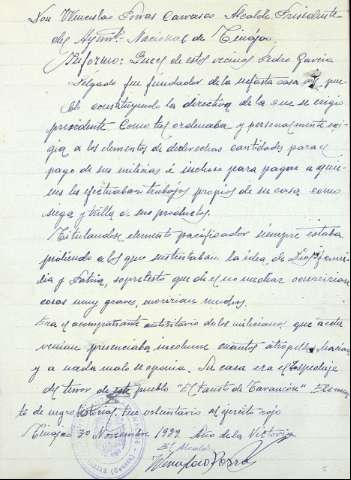 Don Wenceslao Porras Carrasco Alcalde Presidente
del Ayunt. Nacional de Tinajas.
Informo: Que el de estos vecinos Pedro García
Delgado fue fundador de la nefasta casa del pue
blo constituyendo la directiva de la que se erigio
presidente. Como tal ordenaba y personalmente exi
gia a los elementos de derechas cantidades para el
pago de sus milicias é incluso para pagar a quie-
nes le efectuaban trabajos propios de su casa como
siega y trilla de sus productos.
Titulandose elemento pacificador siempre estaba
a los que sustentaban la idea de Dios, Fami
lia y Patria, so pretesto que de el no mediar ocurririan
cosas muy graves, moririan muchos.
Era el acompañante de los milicianos que a este
venian presenciaba incolume cuantos atropellos hacian
y a nada malo se oponia. Su casa era el
del terror de este pueblo "El Fausto de Tarancón" Elemen
to de negra historia. Fue voluntario al ejercito rojo
Tinajas 30 Noviembre 1939 Año de la Victoria
El Alcalde
Wenceslao Porras